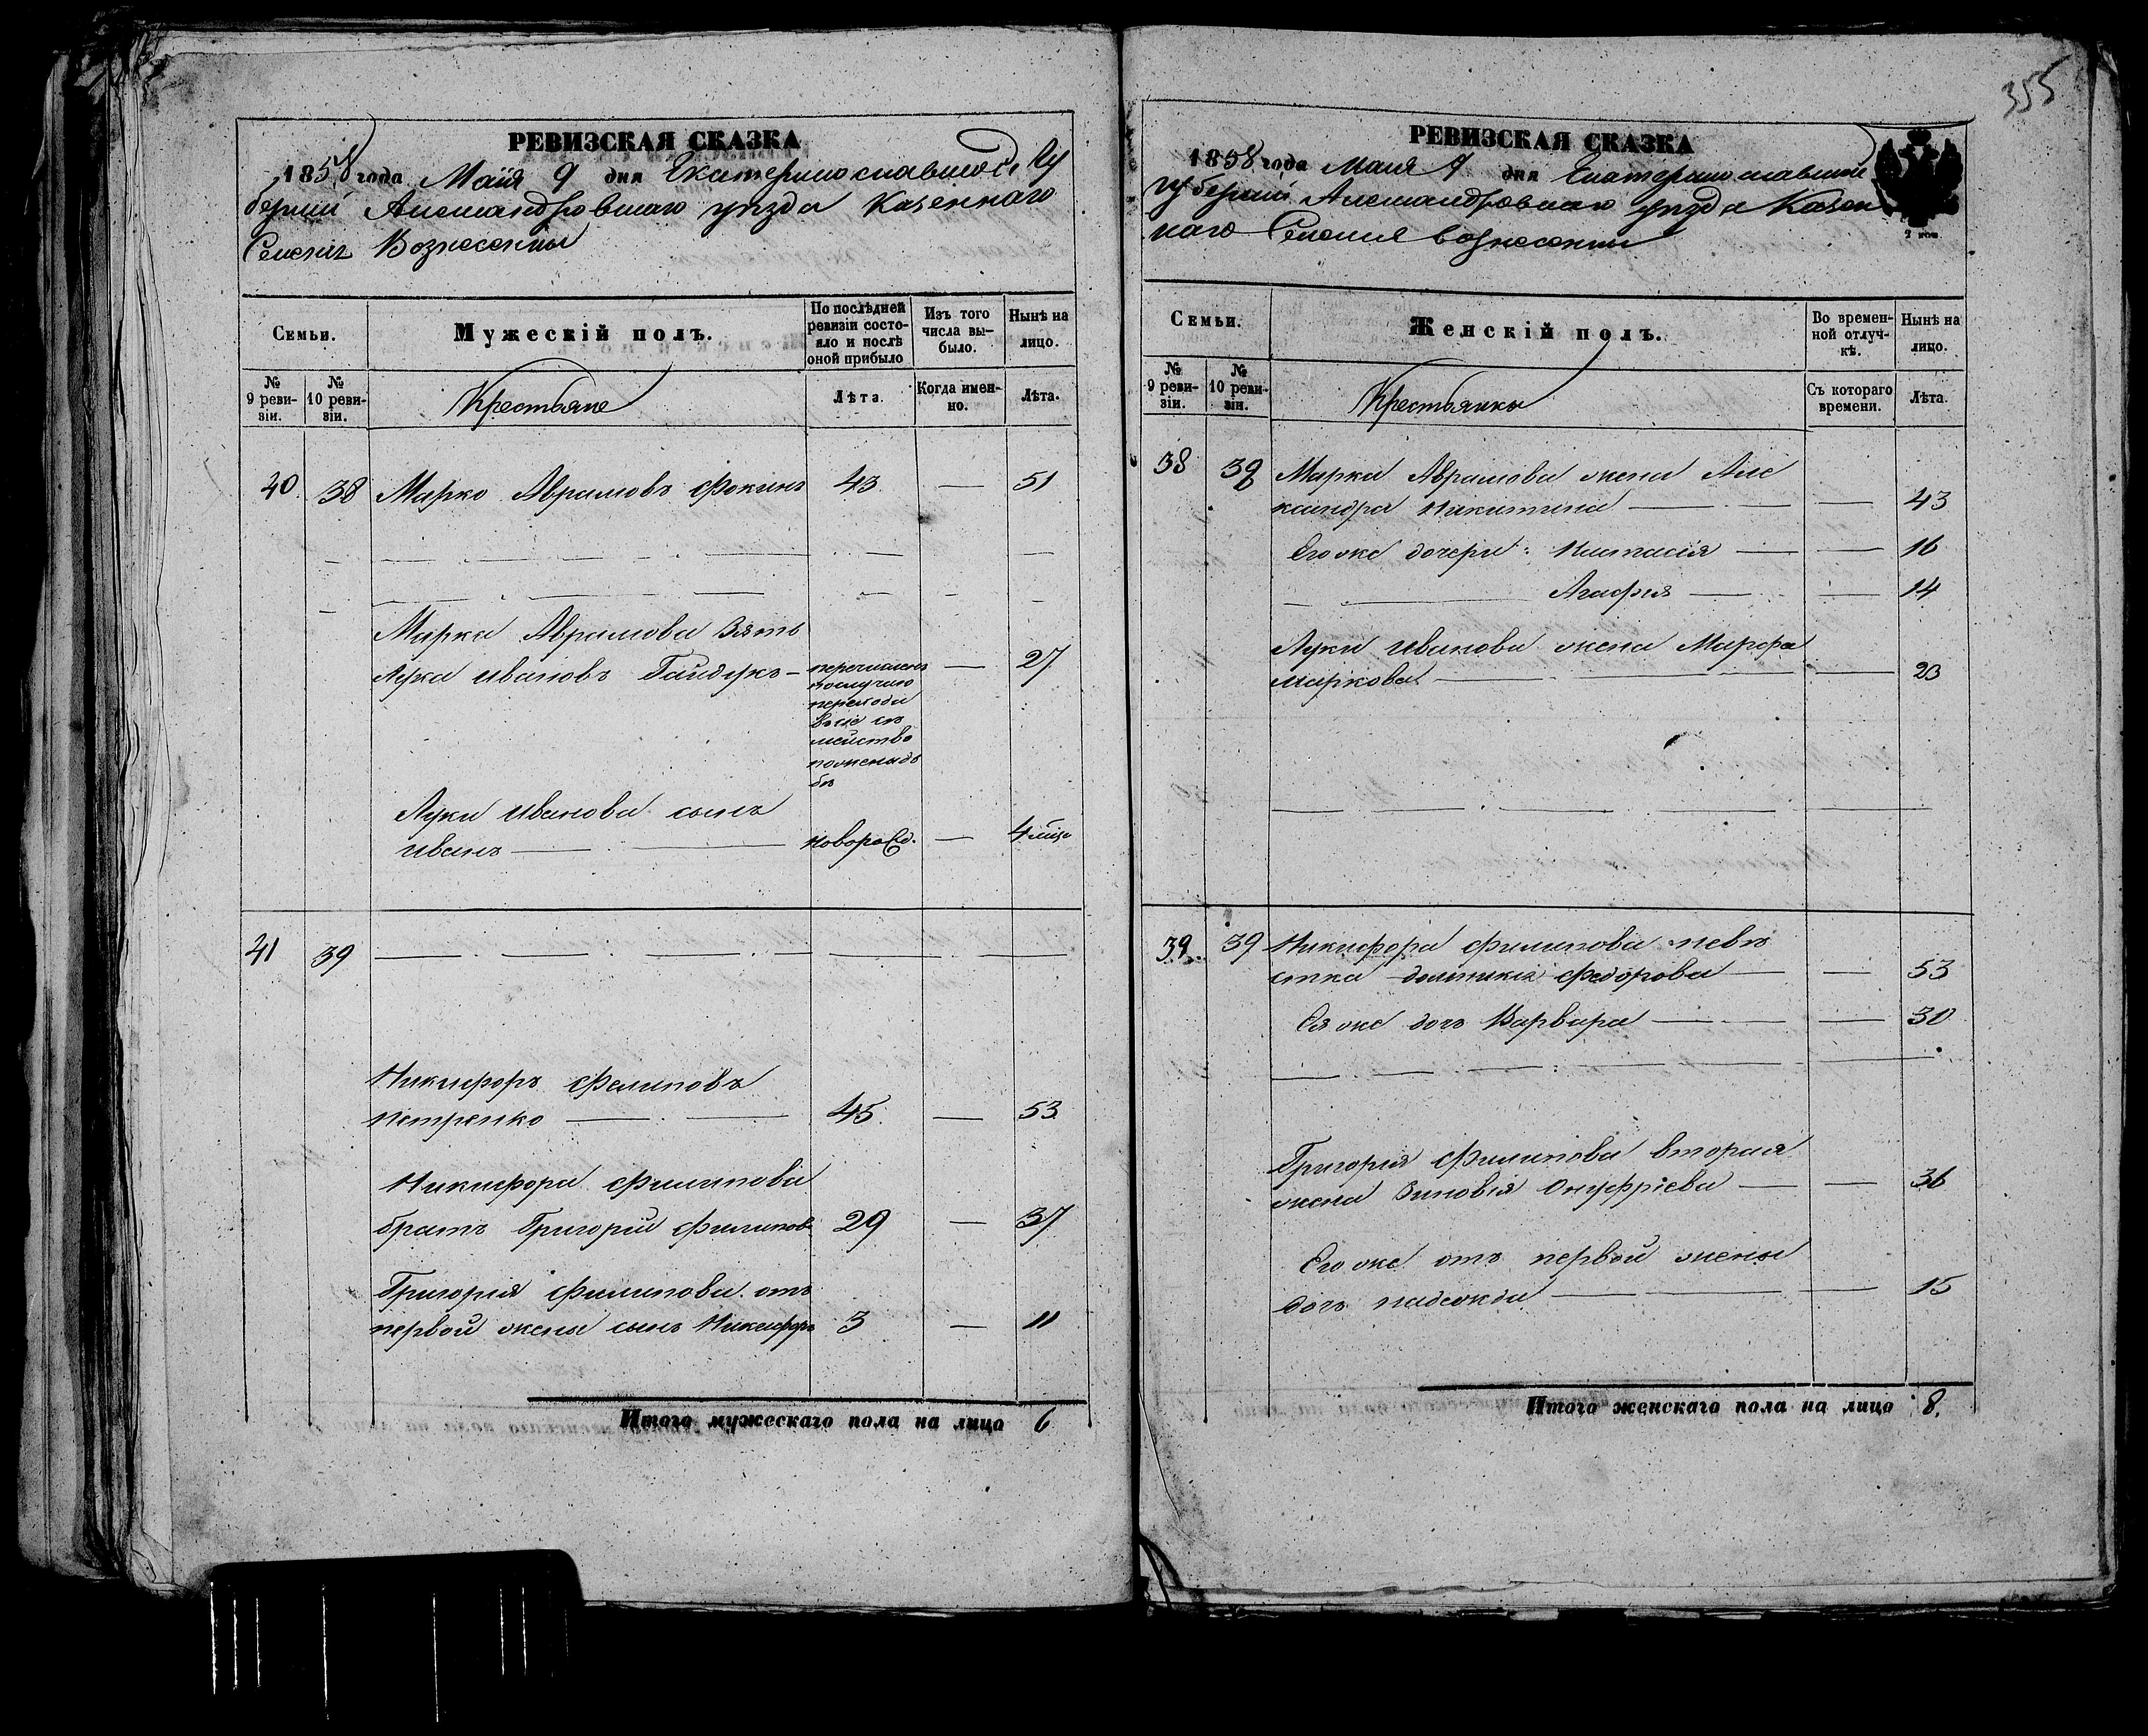 355
РЕВИЗСКАЯ СКАЗКА
1858 года Маія 9 дня Екатеринославской Гу
берніи Александровскаго уѣзда Казеннаго
Селенія Вознесенки
Семьи.
Мужескій полъ.
По послѣдней ревизіи состояло и послѣ оной прибыло
Изъ того числа выбыло.
Нынѣ на лицо.
№ 9 ревизіи.
№ 10 ревизіи.
Крестьяне
Лѣта.
Когда именно.
Лѣта.
40. 38 Марко Аврамовъ Фокинъ 43 — 51
Марка Аврамова Зять
Лука Ивановъ Гайдукъ — перечисленъ — 27
послучаю
перехода
въ сіе се
мейство
Луки Иванова сынъ
Иванъ — новорожд. — 4 мѣс.
41 39
Никифоръ Филиповъ
Петренко — 45. — 53.
Никифора Филипова
братъ Григорій Филиповъ 29 — 37
Григорія Филипова отъ
первой жены сынъ Никифоръ 3 — 11
Итого мужескаго пола на лицо 6
РЕВИЗСКАЯ СКАЗКА
1858 года Маія 9 дня Екатеринославской
Губерніи Александровскаго уѣзда Казен
наго Селенія Вознесенки
2 коп.
Семьи.
Женскій полъ.
Во временной отлучкѣ.
Нынѣ на лицо.
№ 9 ревизіи.
№ 10 ревизіи.
Крестьянки
Съ котораго времени.
Лѣта.
38 38 Марка Аврамова жена Але
ксандра Никитина — — 43
Его же дочери: Настасія — — 16
Агафія — — 14
Луки Иванова жена Марфа
Маркова — — 23
39. 39 Никифора Филипова невѣ
стка Домникія Федорова — — 53
Ея же дочь Варвара — — 30
Григорія Филипова вторая
жена Зиновія Онуфріева — — 36
Его же отъ первой жены
дочь Надежда — — 15
Итого женскаго пола на лицо 8.